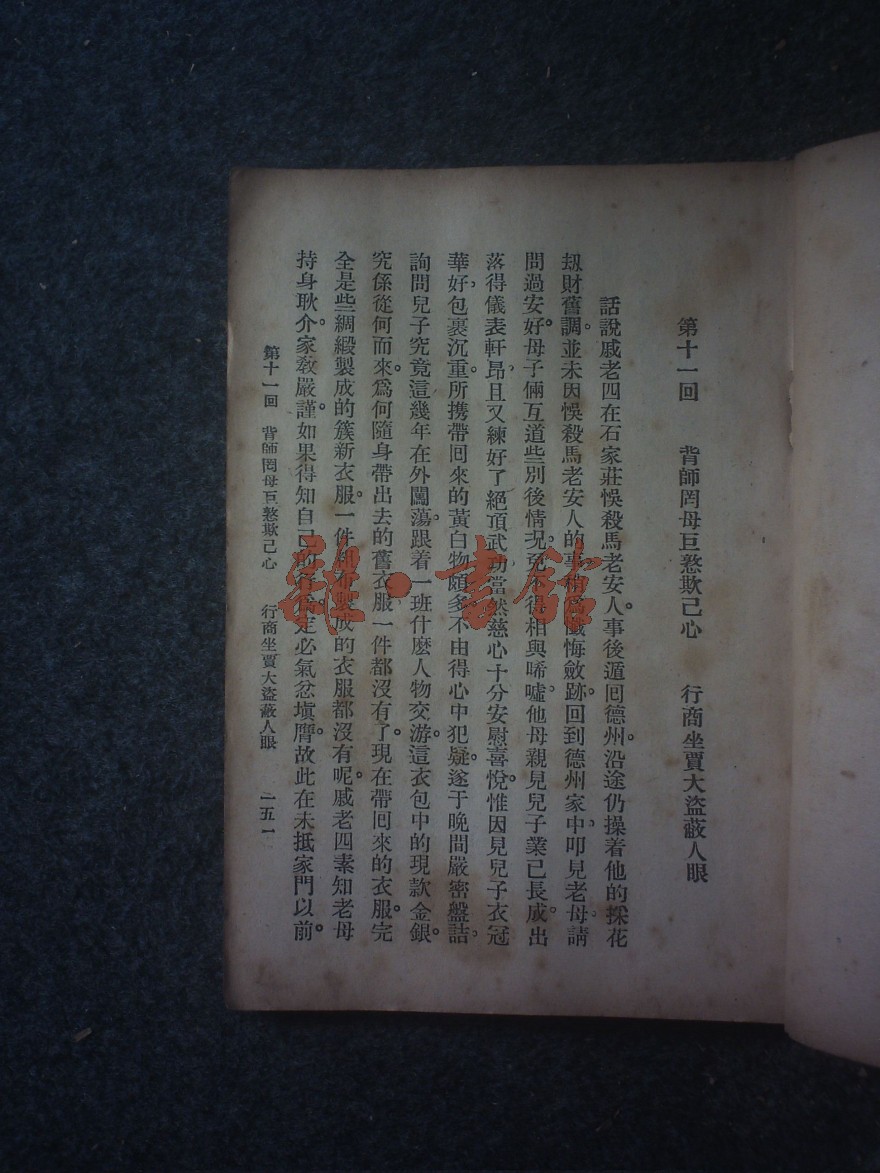 第十一回 背師罔母巨憝欺己心 行商坐賈大盜蔽人眼
話說戚老四在石家莊悞殺馬老安人。事後遁回德州沿途仍操着他的採花
刼財舊調。並未因悞殺馬老安人的事稍爲懺悔斂跡。回到德州家中。叩見老母。請
問過安好。母子倆互道些別後情況。免不得相與唏噓。他母親見兒子業已長成。出
落得儀表軒昂。且又練好了絕頂武功。當然慈心十分安慰喜悅。惟因見兒子衣冠
華好。包裹沉重。所携帶回來的黃白物頗多。不由得心中犯疑。遂于晚間嚴密盤詰。
詢問兒子究竟這幾年在外闖蕩。跟着一班什麽人物交游。這衣包中的現款金銀。
究係從何而來。爲何隨身帶出去的舊衣服一件都沒有了。現在帶回來的衣服。完
全是些綢緞製成的簇新衣服。一件和布製成的衣服都沒有呢。戚老四素知老母
持身耿介。家教嚴謹。如果得知自己的行爲。定必氣忿塡膺。故此在未抵家門以前。
第十一回 背師罔母巨憝欺己心 行商坐賈大盜蔽人眼 一五一
雜·書館